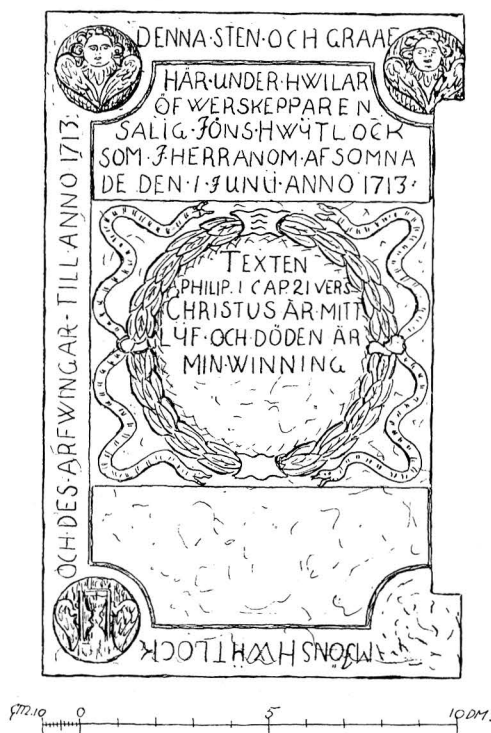 DENNA·STEN·OCH GRAAF
HÄR·UNDER·HWILAR
ÖFWERSKEPPAREN
SALIG·JÖNS·HWŸTLOCK
SOM·J·HERRANOM·AFSOMNA
DE DEN·1·JUNŸ·ANNO 1713:
TEXTEN
PHILIP. 1 CAP. 21 VERS
CHRISTUS ÄR MITT
LŸF·OCH·DÖDEN ÄR
MIN·WINNING
JÖNS HWŸTLOCK
OCH·DES·ARFWINGAR·TILL·ANNO 1713:
CM.10 0 5 10 DM.